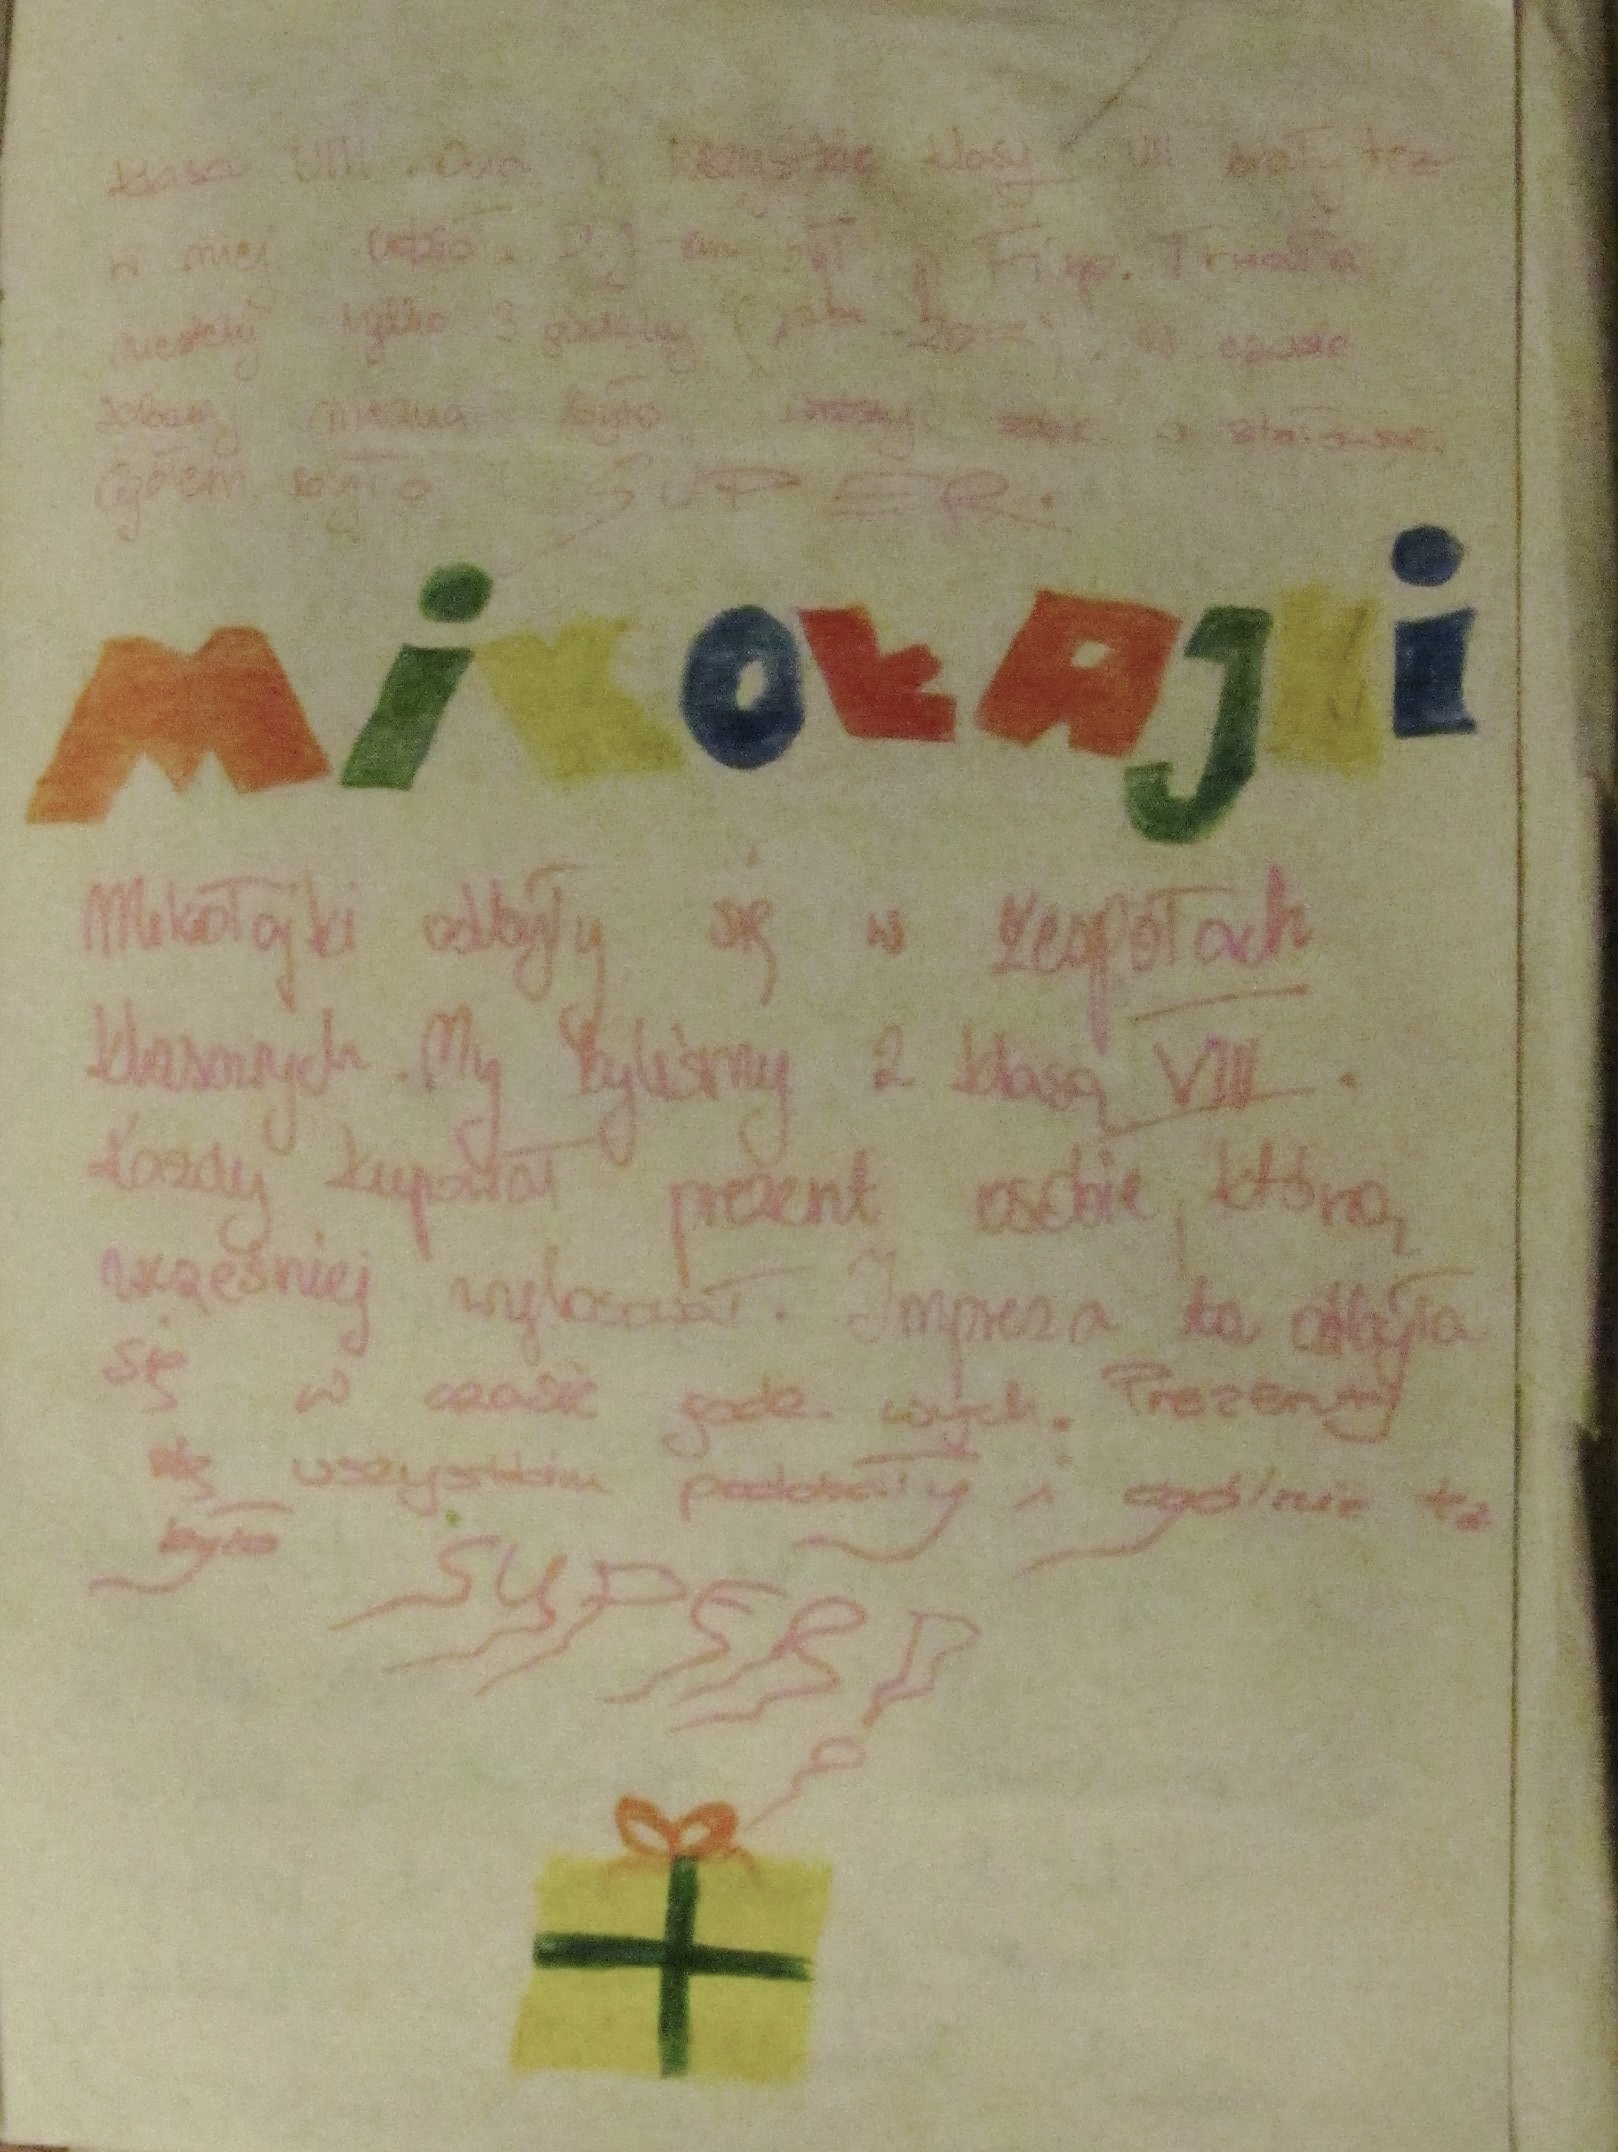 klasa VIII. Ona i klasy VII brały też
w niej udział. był Filip. Trwała
niestety tylko 3 godziny ( w czasie
zabawy można było
Ogółem było SUPER.
MiKOŁAJKi
Mikołajki odbyły się w zespołach
klasowych. My byliśmy z klasą VIII.
Każdy kupował prezent osobie, którą
wcześniej wylosował. Impreza ta odbyła
się w czasie godz. wych. Prezenty
się wszystkim podobały i ogólnie to
było SUPER!